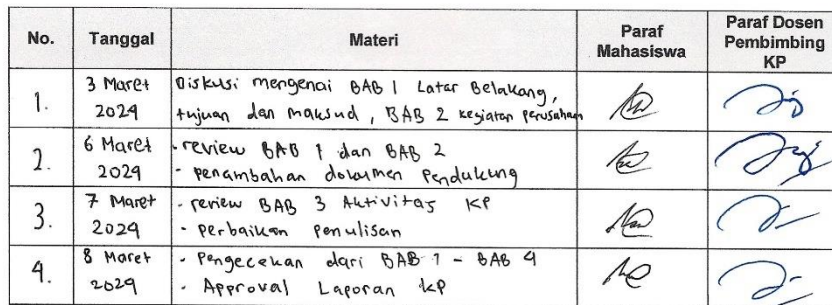 No. Tanggal Materi Paraf Mahasiswa Paraf Dosen Pembimbing KP
1. 3 Maret 2024 Diskusi mengenai BAB 1 Latar Belakang,
tujuan dan maksud, BAB 2 kegiatan perusahaan
2. 6 Maret 2024 - review BAB 1 dan BAB 2
- penambahan dokumen pendukung
3. 7 Maret 2024 - review BAB 3 Aktivitas KP
- perbaikan penulisan
4. 8 Maret 2024 - Pengecekan dari BAB 1 - BAB 4
- Approval Laporan KP